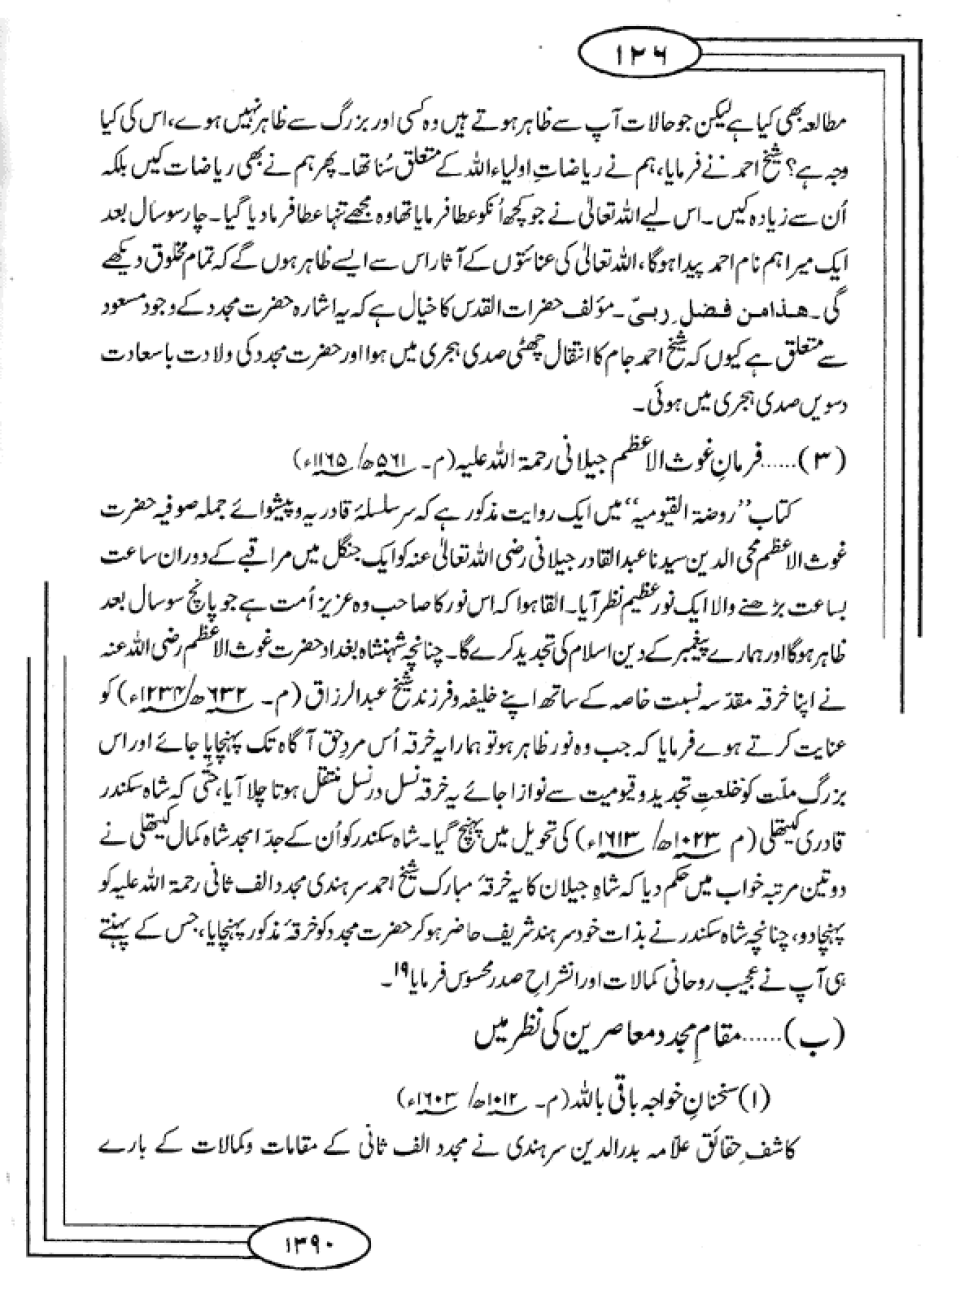 ۱۲۶
مطالعہ بھی کیا ہے لیکن جو حالات آپ سے ظاہر ہوتے ہیں وہ کسی اور بزرگ سے ظاہر نہیں ہوے، اس کی کیا
وجہ ہے؟ شیخ احمد نے فرمایا، ہم نے ریاضاتِ اولیاء اللہ کے متعلق سُنا تھا۔ پھر ہم نے بھی ریاضات کیں بلکہ
اُن سے زیادہ کیں۔ اس لیے اللہ تعالیٰ نے جو کچھ اُنکو عطا فرمایا تھا وہ مجھے تنہا عطا فرما دیا گیا۔ چار سو سال بعد
ایک میرا ہم نام احمد پیدا ہوگا، اللہ تعالیٰ کی عنائتوں کے آثار اس سے ایسے ظاہر ہوں گے کہ تمام مخلوق دیکھے
گی۔ ھذا من فضل ربیّ۔ مؤلف حضرات القدس کا خیال ہے کہ یہ اشارہ حضرت مجدد کے وجود مسعود
سے متعلق ہے کیوں کہ شیخ احمد جام کا انتقال چھٹی صدی ہجری میں ہوا اور حضرت مجدد کی ولادت باسعادت
دسویں صدی ہجری میں ہوئی۔
(۳)......فرمانِ غوث الاعظم جیلانی رحمۃ اللہ علیہ (م۔ ۵۶۱ھ/ ۱۱۶۵ء)
کتاب ’’روضۃ القیومیہ‘‘ میں ایک روایت مذکور ہے کہ سرسلسلۂ قادریہ و پیشوائے جملہ صوفیہ حضرت
غوث الاعظم محی الدین سیدنا عبدالقادر جیلانی رضی اللہ تعالیٰ عنہ کو ایک جنگل میں مراقبے کے دوران ساعت
بساعت بڑھنے والا ایک نور عظیم نظر آیا۔ القا ہوا کہ اس نور کا صاحب وہ عزیز اُمت ہے جو پانچ سو سال بعد
ظاہر ہوگا اور ہمارے پیغمبر کے دین اسلام کی تجدید کرے گا۔ چنانچہ شہنشاہ بغداد حضرت غوث الاعظم رضی اللہ عنہ
نے اپنا خرقہ مقدّسہ نسبت خاصہ کے ساتھ اپنے خلیفہ و فرزند شیخ عبدالرزاق (م۔ ۶۳۲ھ/۱۲۳۴ء) کو
عنایت کرتے ہوے فرمایا کہ جب وہ نور ظاہر ہو تو ہمارا یہ خرقہ اُس مردِ حق آگاہ تک پہنچایا جائے اور اس
بزرگ ملّت کو خلعتِ تجدید و قیومیت سے نوازا جائے یہ خرقہ نسل در نسل منتقل ہوتا چلا آیا، حتّٰی کہ شاہ سکندر
قادری کیتھلی (م ۱۰۲۳ھ/ ۱۶۱۳ء) کی تحویل میں پہنچ گیا۔ شاہ سکندر کو اُن کے جدّ امجد شاہ کمال کیتھلی نے
دو تین مرتبہ خواب میں حکم دیا کہ شاہِ جیلان کا یہ خرقۂ مبارک شیخ احمد سرہندی مجدد الف ثانی رحمۃ اللہ علیہ کو
پہنچا دو، چنانچہ شاہ سکندر نے بذات خود سرہند شریف حاضر ہو کر حضرت مجدد کو خرقۂ مذکور پہنچایا، جس کے پہنتے
ہی آپ نے عجیب روحانی کمالات اور انشراحِ صدر محسوس فرمایا۱۹۔
(ب)......مقامِ مجدد معاصرین کی نظر میں
(۱) سخنانِ خواجہ باقی باللہ (م۔ ۱۰۱۲ھ/ ۱۶۰۳ء)
کاشفِ حقائق علاّمہ بدرالدین سرہندی نے مجدد الف ثانی کے مقامات وکمالات کے بارے
۱۳۹۰